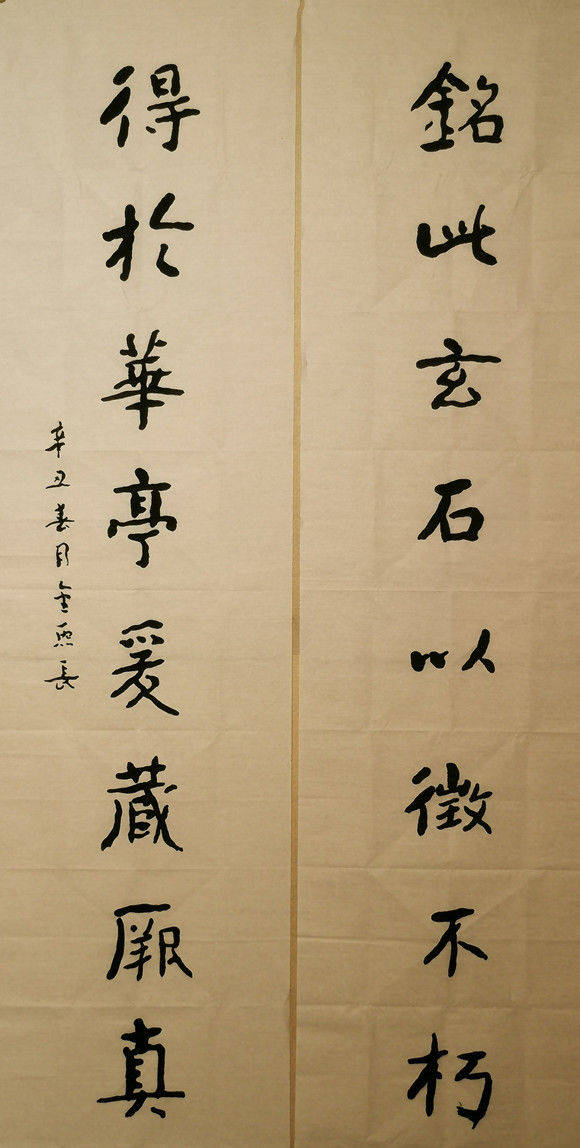 銘此玄石以徵不朽
得於華亭爰藏厥真
辛丑春月金熙長